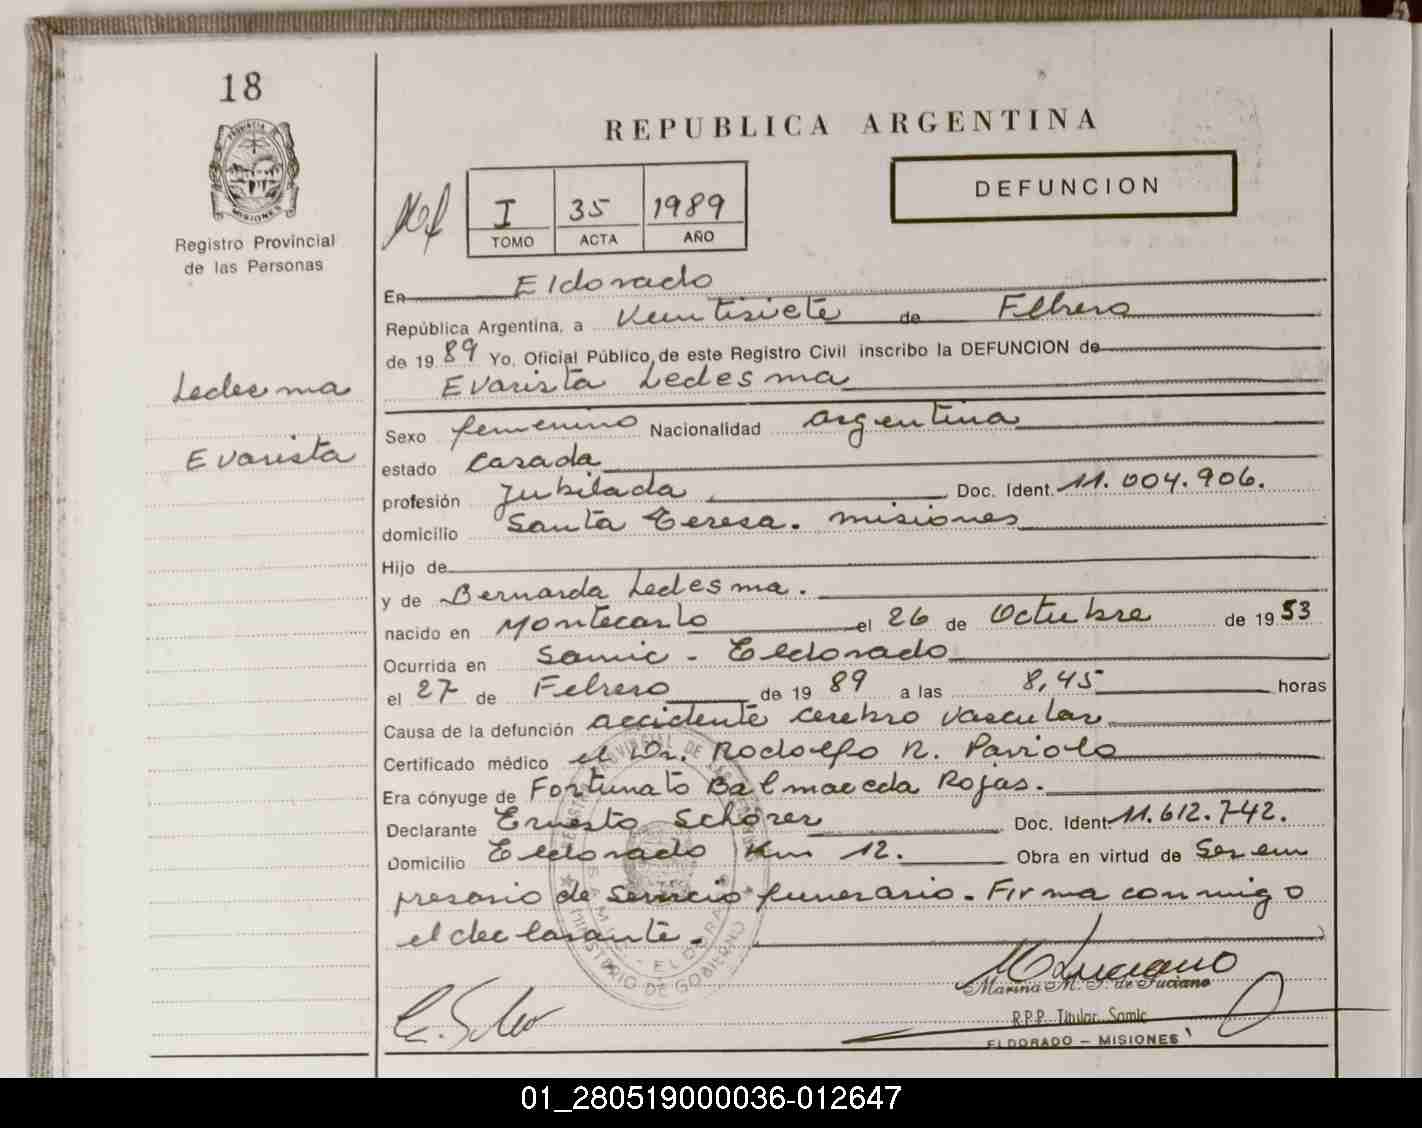 18
PROVINCIA
MISIONES
Registro Provincial
de las Personas
Ledesma
Evarista
REPUBLICA ARGENTINA
DEFUNCION
I 35 1989
TOMO ACTA AÑO
En Eldorado
República Argentina, a Veintisiete de Febrero
de 19 89 Yo, Oficial Público, de este Registro Civil inscribo la DEFUNCION de
Evarista Ledesma
Sexo femenino Nacionalidad argentina
estado casada
profesión Jubilada Doc. Ident. 11.004.906.
domicilio Santa Teresa. misiones
Hijo de
y de Bernarda Ledesma.
nacido en Montecarlo el 26 de Octubre de 19 53
Ocurrida en Samic - Eldorado
el 27 de Febrero de 19 89 a las 8,45 horas
Causa de la defunción accidente cerebro vascular
Certificado médico el Dr. Rodolfo R. Pariolo
Era cónyuge de Fortunato Balmaceda Rojas.
Declarante Ernesto Schörer Doc. Ident. 11.612.742.
Domicilio Eldorado Km 12. Obra en virtud de Ser em
presario de Servicio funerario. Firma conmigo
el declarante.
M Luciano
Marina M. J. de Luciano
R.P.P. Titular Samic
ELDORADO - MISIONES
01_280519000036-012647